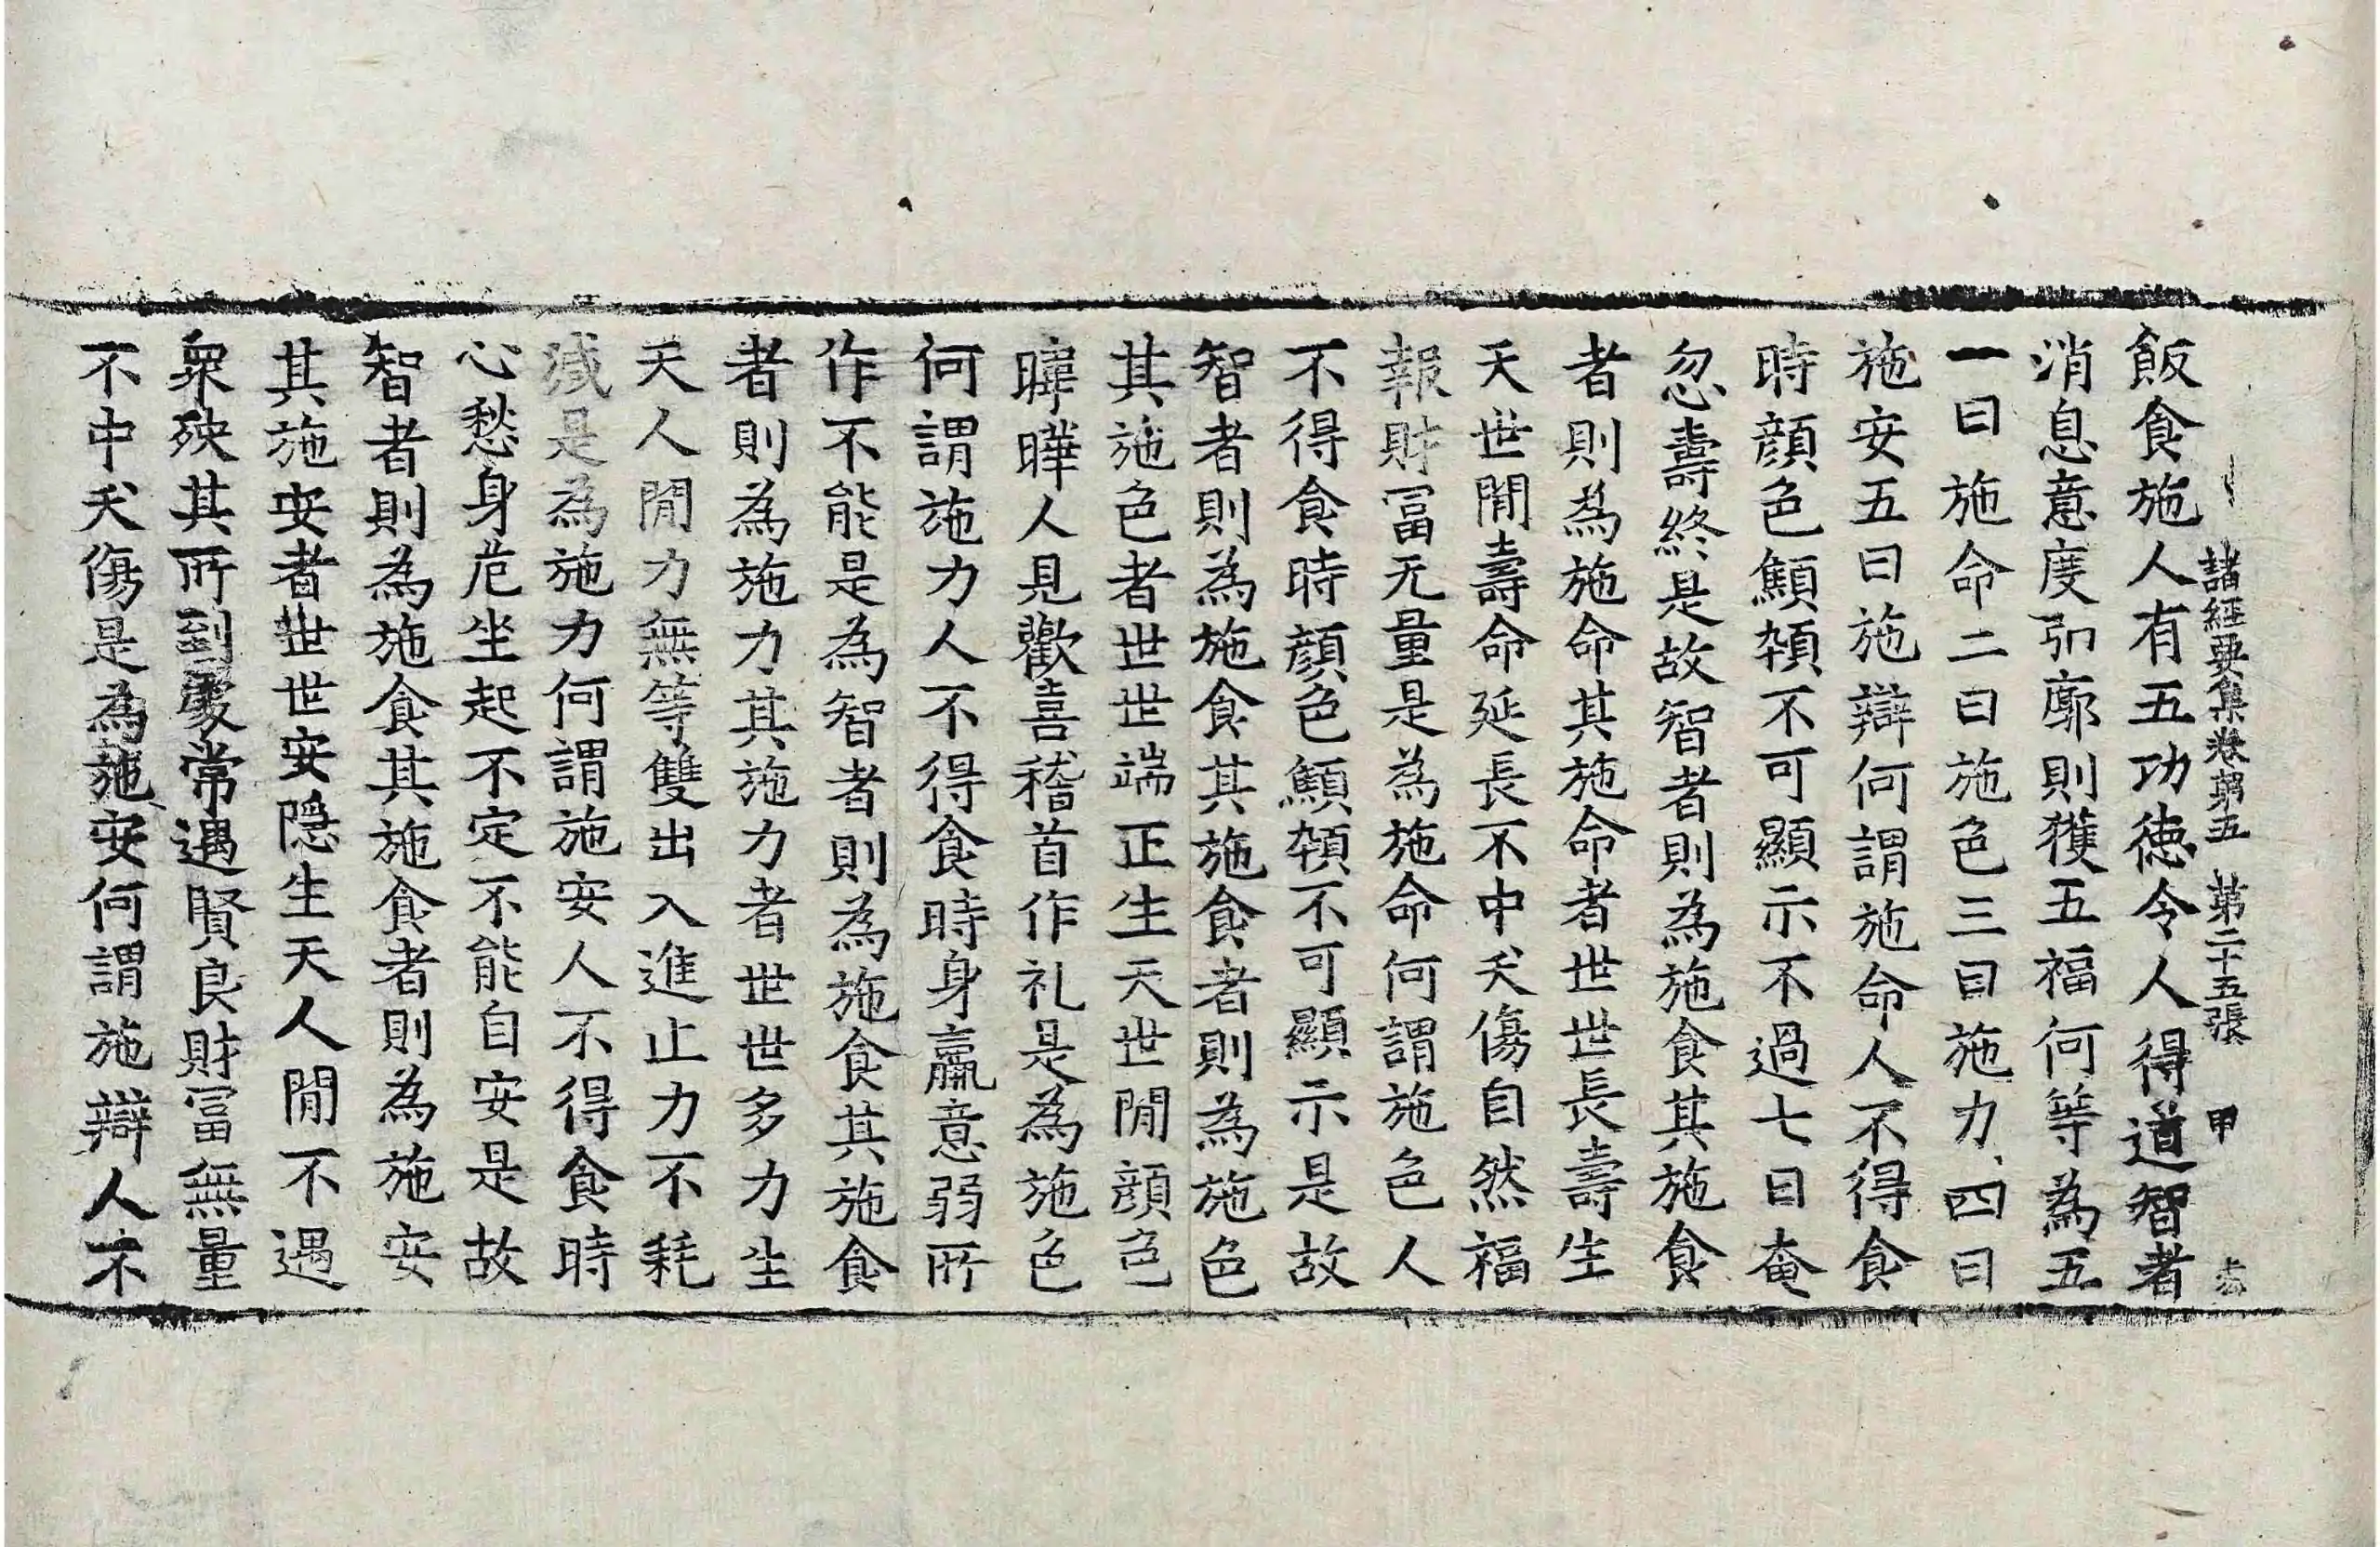 諸經要集卷第五 第二十五張 甲
飯食施人有五功德令人得道智者
消息意度弘廓則獲五福何等為五
一曰施命二曰施色三曰施力四曰
施安五曰施辯何謂施命人不得食
時顏色顦頓不可顯示不過七日奄
忽壽終是故智者則為施食其施食
者則為施命其施命者世世長壽生
天世間壽命延長不中夭傷自然福
報財冨无量是為施命何謂施色人
不得食時顏色顦頓不可顯示是故
智者則為施食其施食者則為施色
其施色者世世端正生天世間顏色
暐曄人見歡喜稽首作礼是為施色
何謂施力人不得食時身羸意弱所
作不能是為智者則為施食其施食
者則為施力其施力者世世多力生
天人間力無等雙出入進止力不耗
減是為施力何謂施安人不得食時
心愁身危坐起不定不能自安是故
智者則為施食其施食者則為施安
其施安者世世安隱生天人間不遇
衆殃其所到處常遇賢良財冨無量
不中夭傷是為施安何謂施辯人不